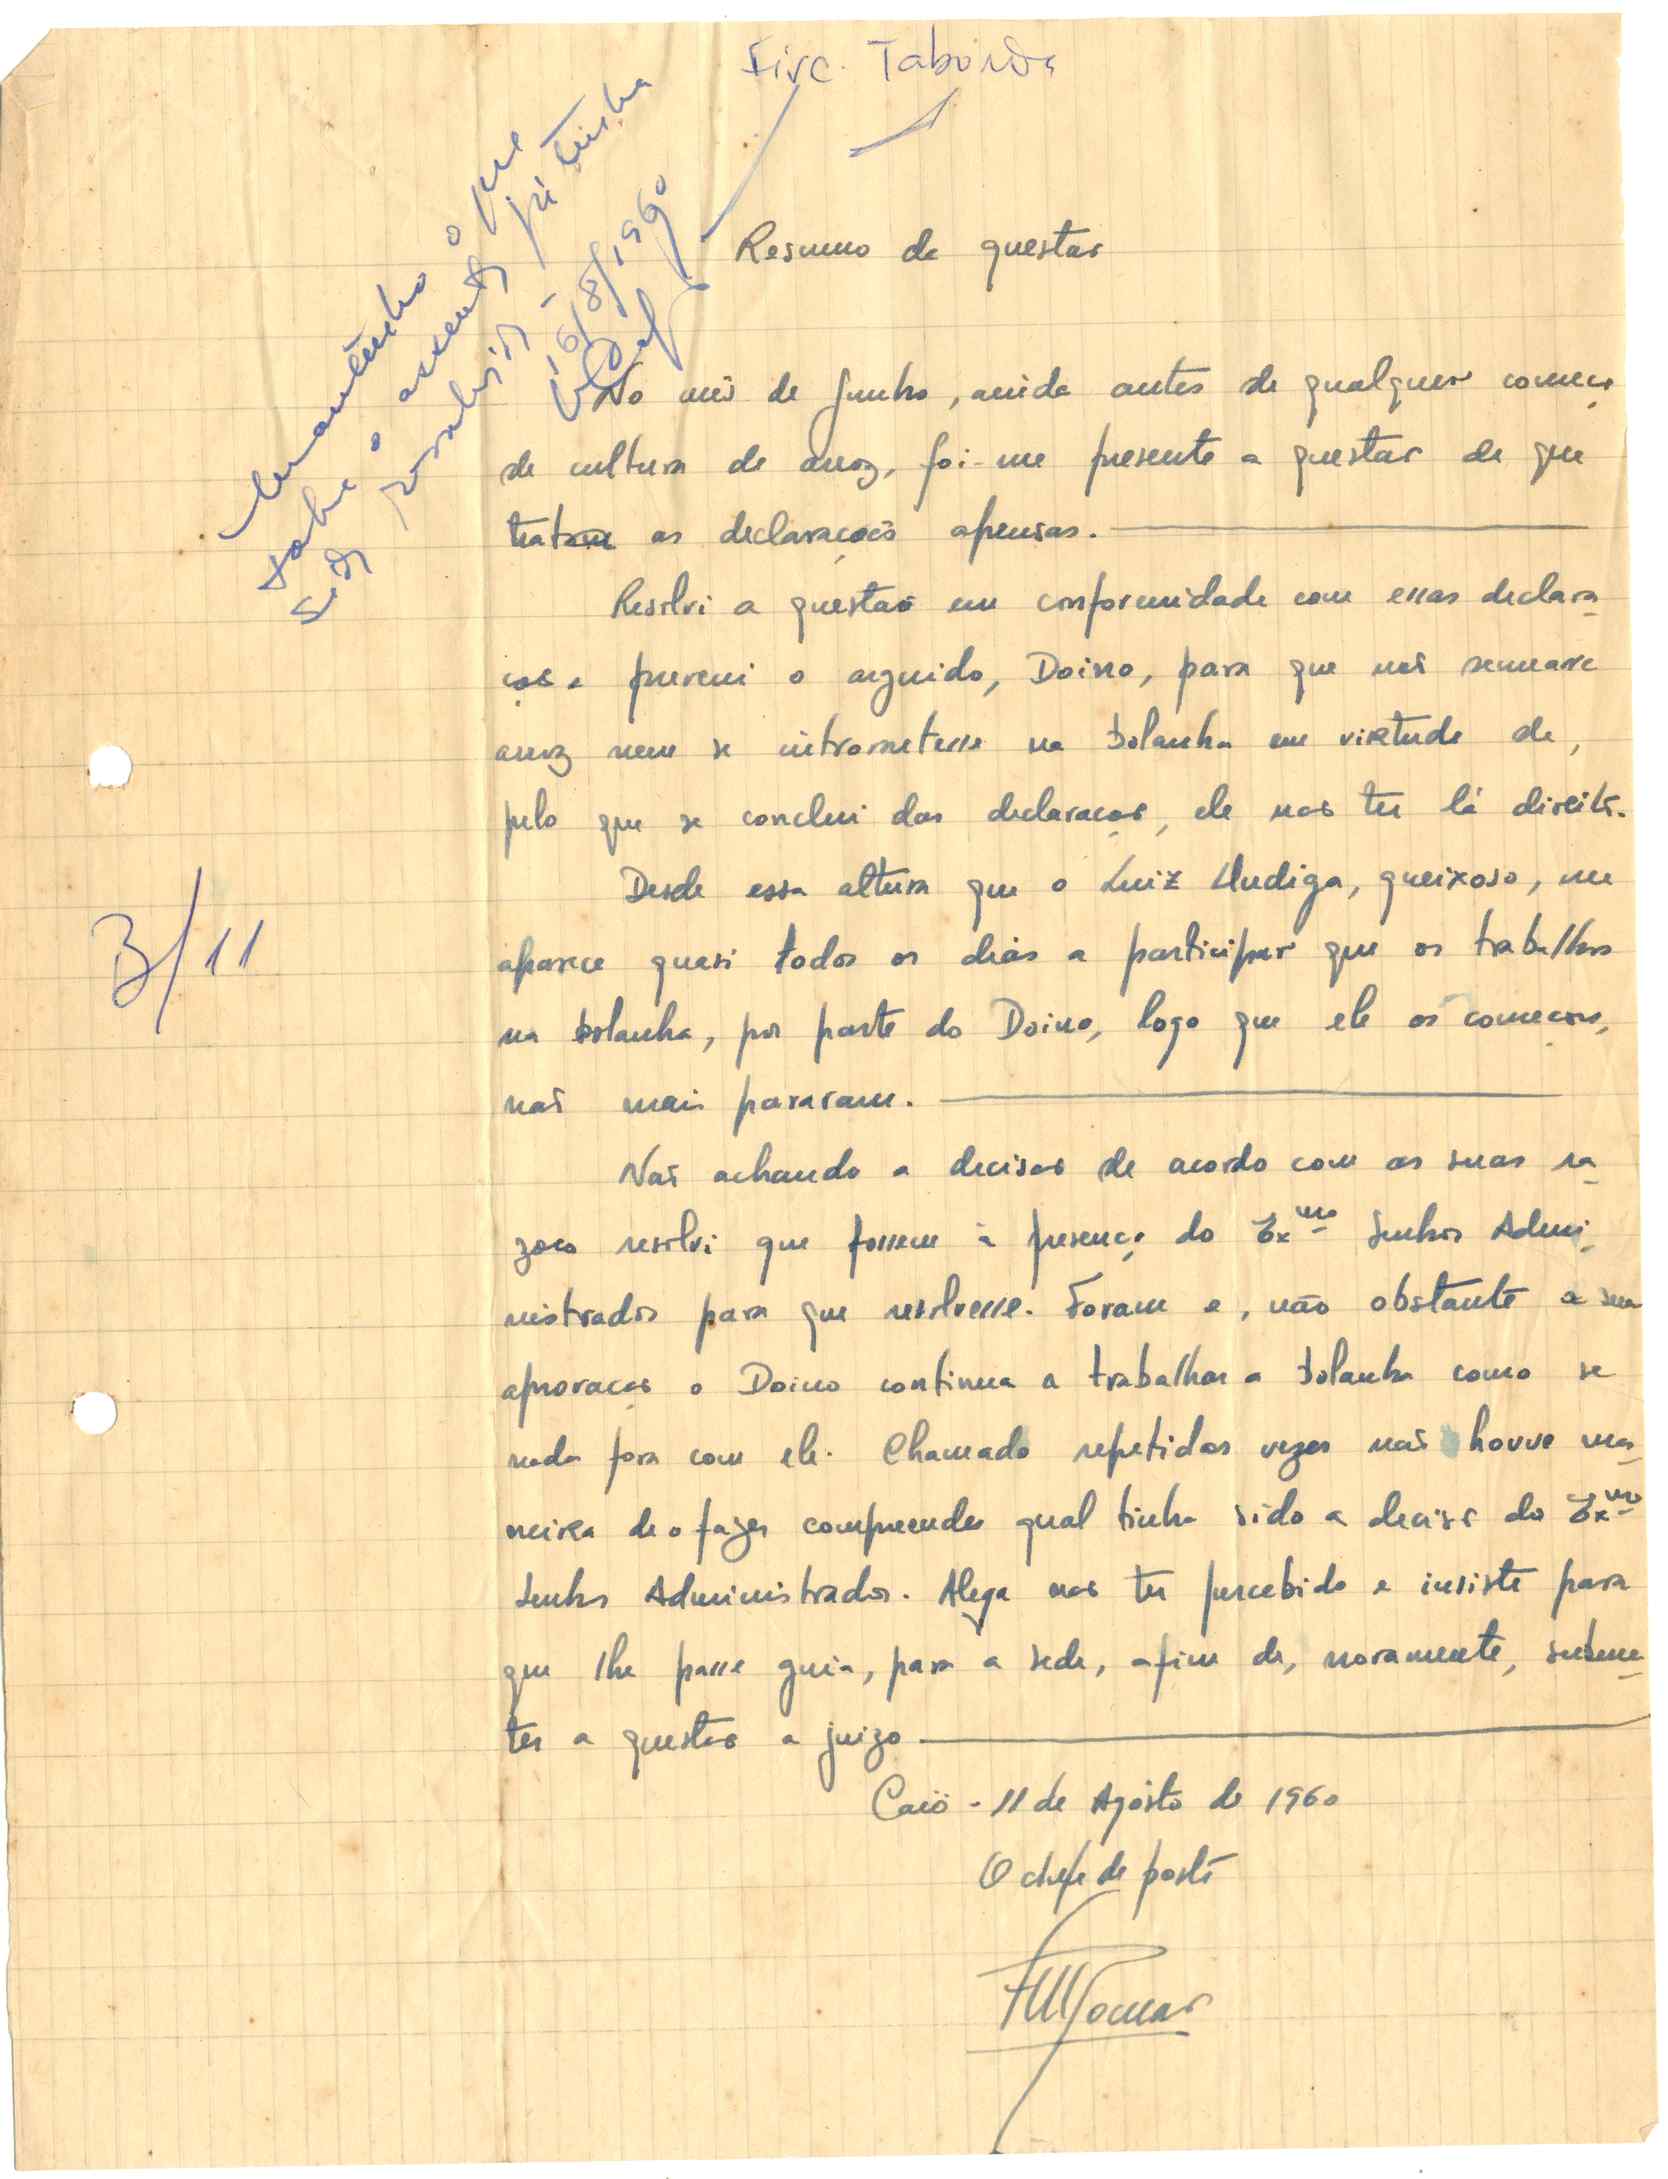 Taborda
Mantenho o que
sobre o assunto já tinha
sido resolvido -
16/8/1960
Resumo da questão
No mês de Junho, ainda antes de qualquer começo
de cultura de arroz, foi-me presente a questão de que
tratam as declarações apensas.
Resolvi a questão em conformidade com essas declara
ções e preveni o arguido, Doino, para que não semeasse
arroz nem se intrometesse na bolanha em virtude de,
pelo que se conclui das declarações, ele não ter lá direito.
Desde essa altura que o Luiz Undiga, queixoso, me
aparece quasi todos os dias a participar que os trabalhos
na bolanha, por parte do Doino, logo que ele os começou,
não mais pararam.
Não achando a decisão de acordo com as suas ra
zões resolvi que fossem à presença do Exmo Senhor Admi
nistrador para que resolvesse. Foram e, não obstante a sua
aprovação o Doino continua a trabalhar a bolanha como se
nada fora com ele. Chamado repetidas vezes não houve ma
neira de o fazer compreender qual tinha sido a decisão do Exmo
Senhor Administrador. Alega não ter percebido e insiste para
que lhe passe guia, para a sede, afim de, novamente, subme
ter a questão a juizo
B/11
Caió - 11 de Agosto de 1960
O chefe de posto